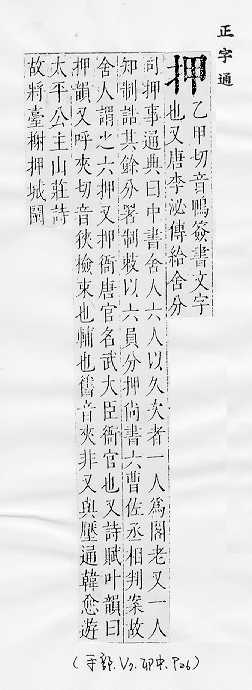 正字通
押
乙甲切音鴨簽書文字
也又唐李泌傳給舍分
司押事通典曰中書舍人六人以久次者一人爲閣老又一人
知制誥其餘分署制敕以六員分押尚書六曹佐丞相判案故
舍人謂之六押又押衙唐官名武大臣衙官也又詩賦叶韻曰
押韻又呼夾切音狹檢束也輔也舊音夾非又與壓通韓愈遊
太平公主山莊詩
故將臺榭押城闉
(手部. 卯中. P26)